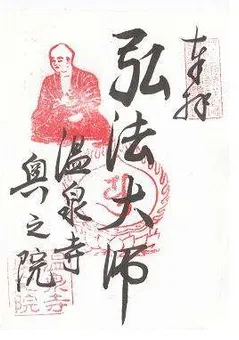 奉拝
弘法大师
温泉寺
奥之院